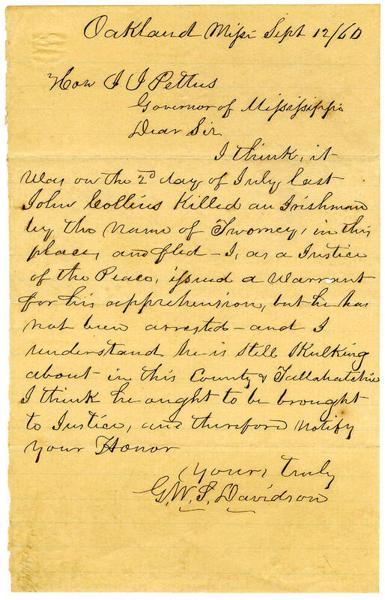 Oakland Missi Sept 12/60
Hon J J Pettus
Governor of Mississippi
Dear Sir
I think, it
was on the 2d day of July last
John Collins Killed an Irishman
by the name of Twomey, in this
place, and fled - I, as a Justice
of the Peace, issued a warrant
for his apprehension, but he has
not been arrested - and I
understand he is still Skulking
about - in this County & Tallahatchie
I think he ought to be brought
to Justice, and therefore notify
your Honor
Yours, truly
G. W. S. Davidson